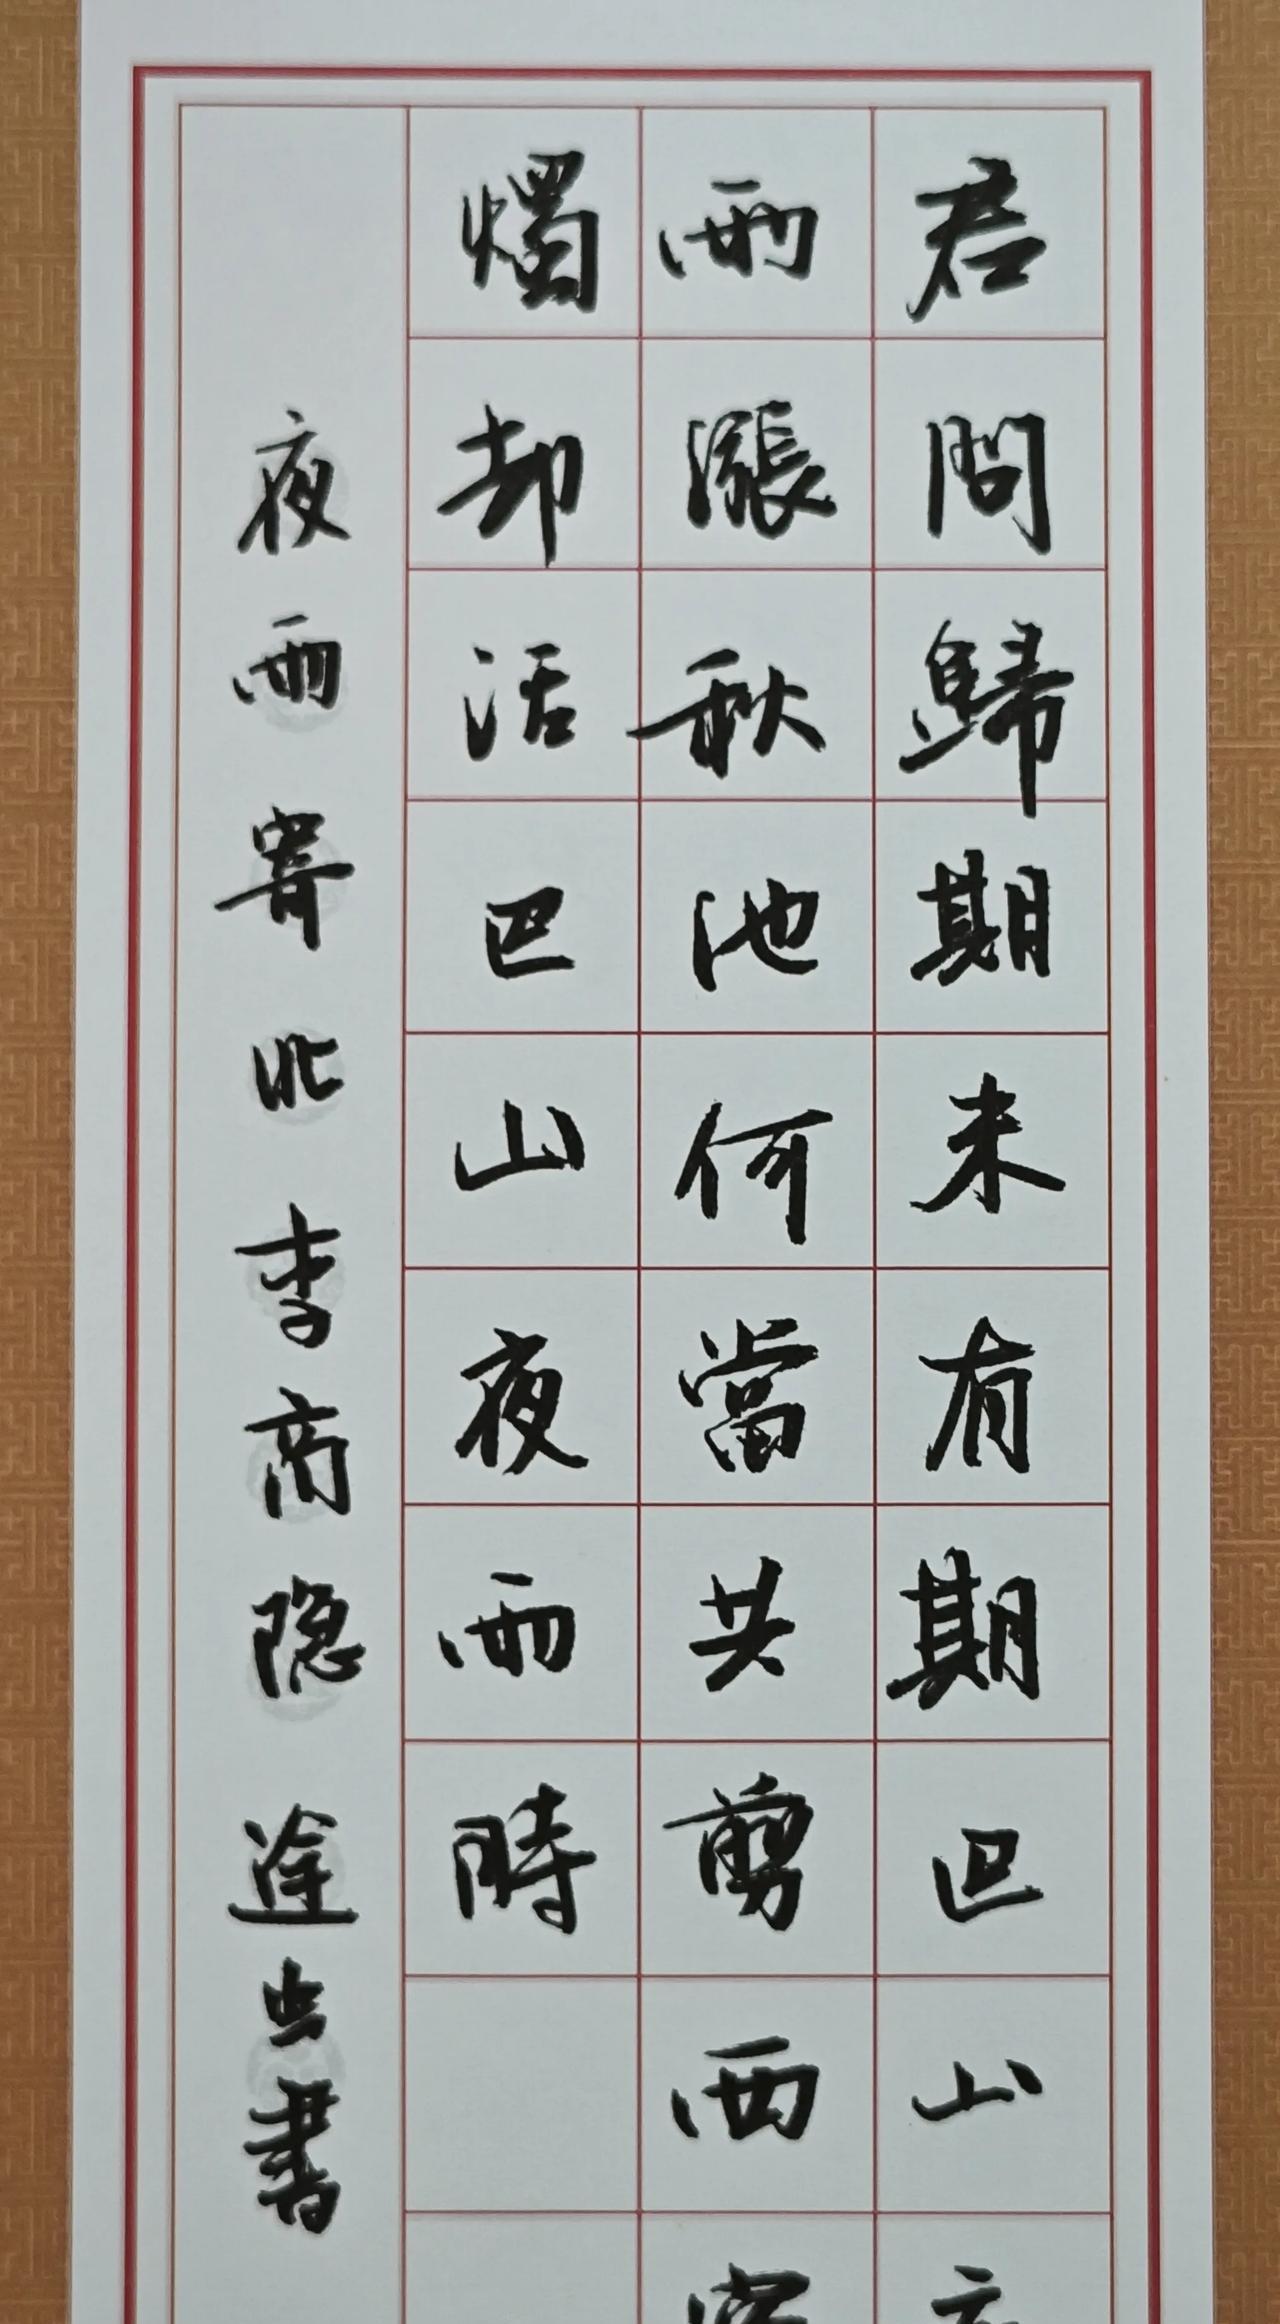 君問歸期未有期巴山
雨漲秋池何當共剪西
燭却話巴山夜雨時
夜雨寄北李商隐途書